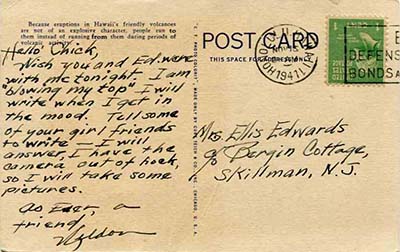 Because eruptions in Hawaii's friendly volcanoes
are not of an explosive character, people run to
them instead of running from them during periods of
volcanic activity.
Hello Chick,
Wish you and Ed. were
with me tonight. I am
"blowing my top" I will
write when I get in
the mood. Tell some
of your girl friends
to write — I will
answer. I have the
camera out of hock,
so I will take some
pictures.
As Ever, a
friend
Weldon
POST CARD
THIS SPACE FOR ADDRESS
1941
1
DEFENSE
BONDS
Mrs. Ellis Edwards
c/o Bergin Cottage,
Skillman, N.J.